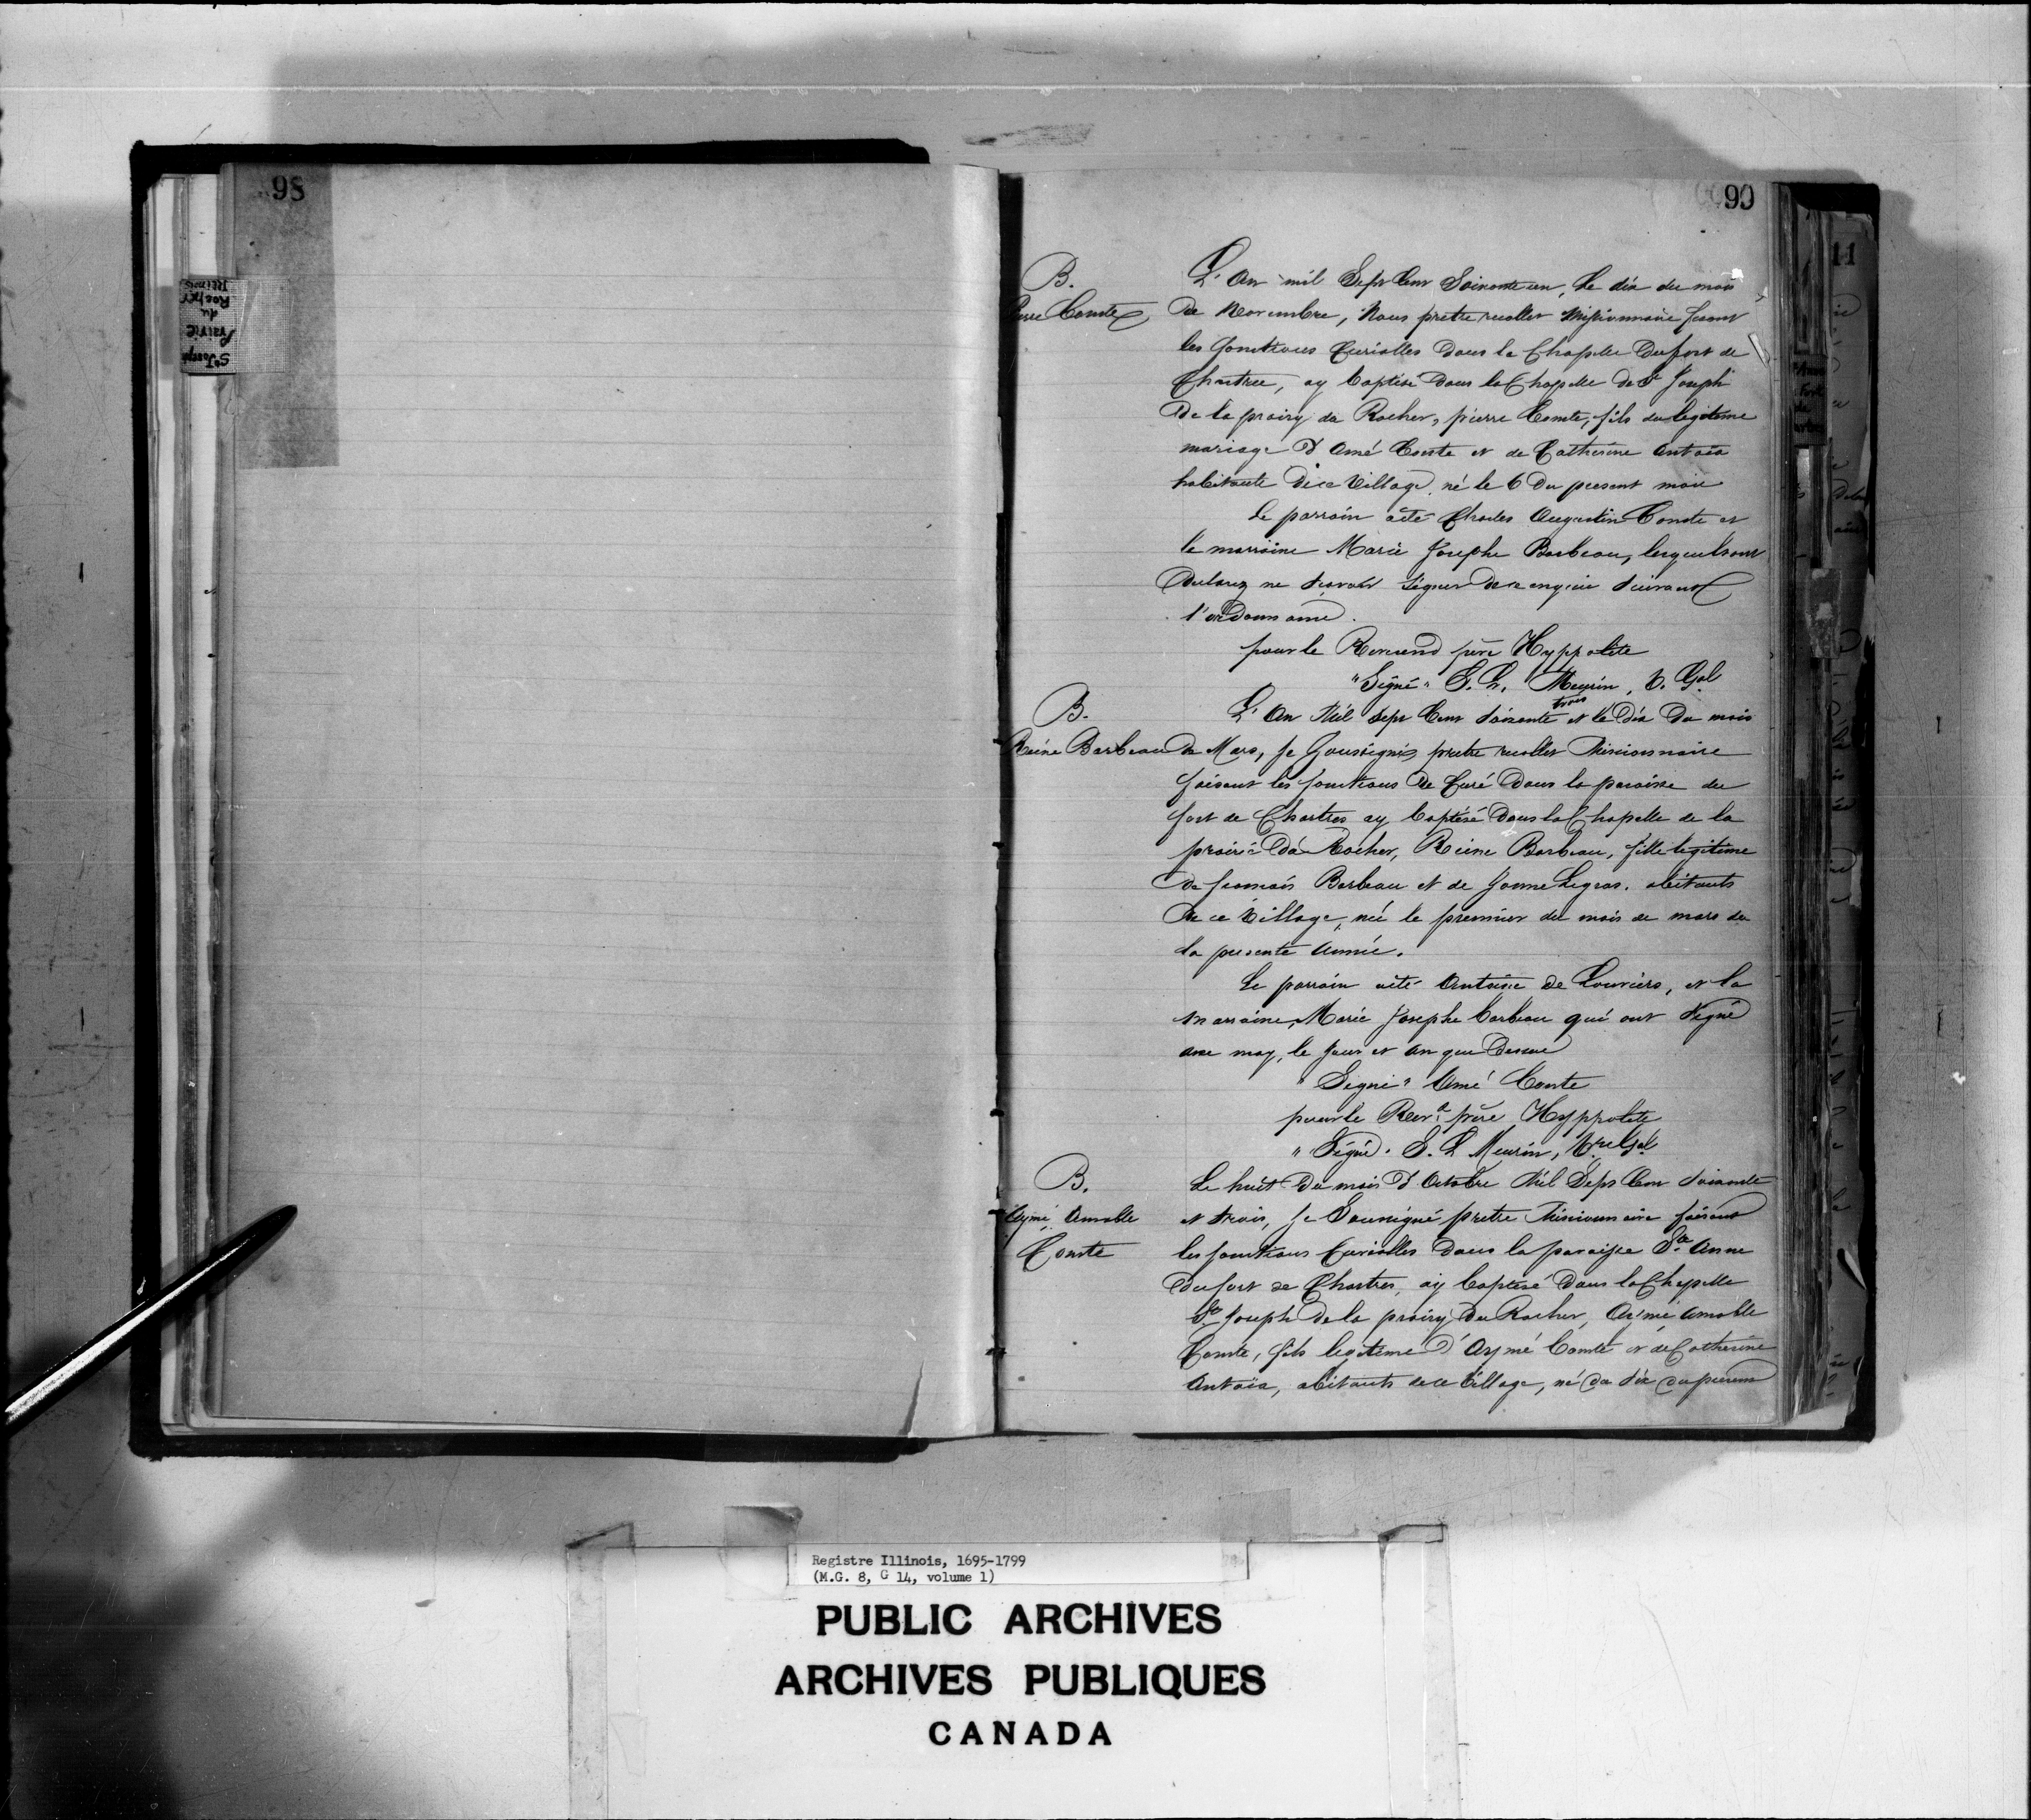 98
99
St Joseph
Prairie
du
Rocher
Illinois
B.
Pierre Comte
L'An mil Sept Cent Soixante un, le dix du mois
de Novembre, Nous pretre recollet Missionnaire fesant
les fonctions Curialles dans la Chapelle du fort de
Chartres, ay baptisé dans la Chapelle de St Joseph
De la prairy du Rocher, pierre Comte, fils du legitime
mariage d'Amé Comte et de Catherine Antaia
habitants de ce Village, né le 6 du present mois
Le parrain a été Charles Augustin Comte et
la marraine Marie Josephe Barbeau, lesquels ont
declarez ne savoir signer de ce enquis suivant
l'ordonnance.
pour le Reverend père Hyppolite
"Signé" S. L. Meurin, V. Gal
B.
Reine Barbeau
L'An Mil Sept Cent Soixante trois et le dix du mois
de Mars, Je Soussigné pretre recollet Missionnaire
faisant les fonctions de Curé dans la paroisse du
fort de Chartres ay baptisé dans la Chapelle de la
prairie du Rocher, Reine Barbeau, fille legitime
de francois Barbeau et de Janne Legras. abitants
de ce Village, née le premier du mois de mars de
la presente année.
Le parrain a été Antoine de Louviers, et la
marraine, Marie Josephe barbeau qui ont Signé
avec moy, le jour et an que dessus
"Signé" Amé Comte
pour le Revd père Hyppolite
"Signé. S. L Meurin, Vre Gal
B.
Aymé Amable
Comte
Le huit du mois d'Octobre Mil Sept Cent Soixante
et trois, Je Soussigné pretre Missionnaire faisant
les fonctions Curialles dans la paroisse Ste Anne
du fort de Chartres, ay baptisé dans la Chapelle
St Joseph de la prairy du Rocher, Aymé Amable
Comte, fils legitime d'Aymé Comte et de Catherine
Antaia, abitants de ce Village, né du dix du present
11
Registre Illinois, 1695-1799
(M.G. 8, G 14, volume 1)
PUBLIC ARCHIVES
ARCHIVES PUBLIQUES
CANADA